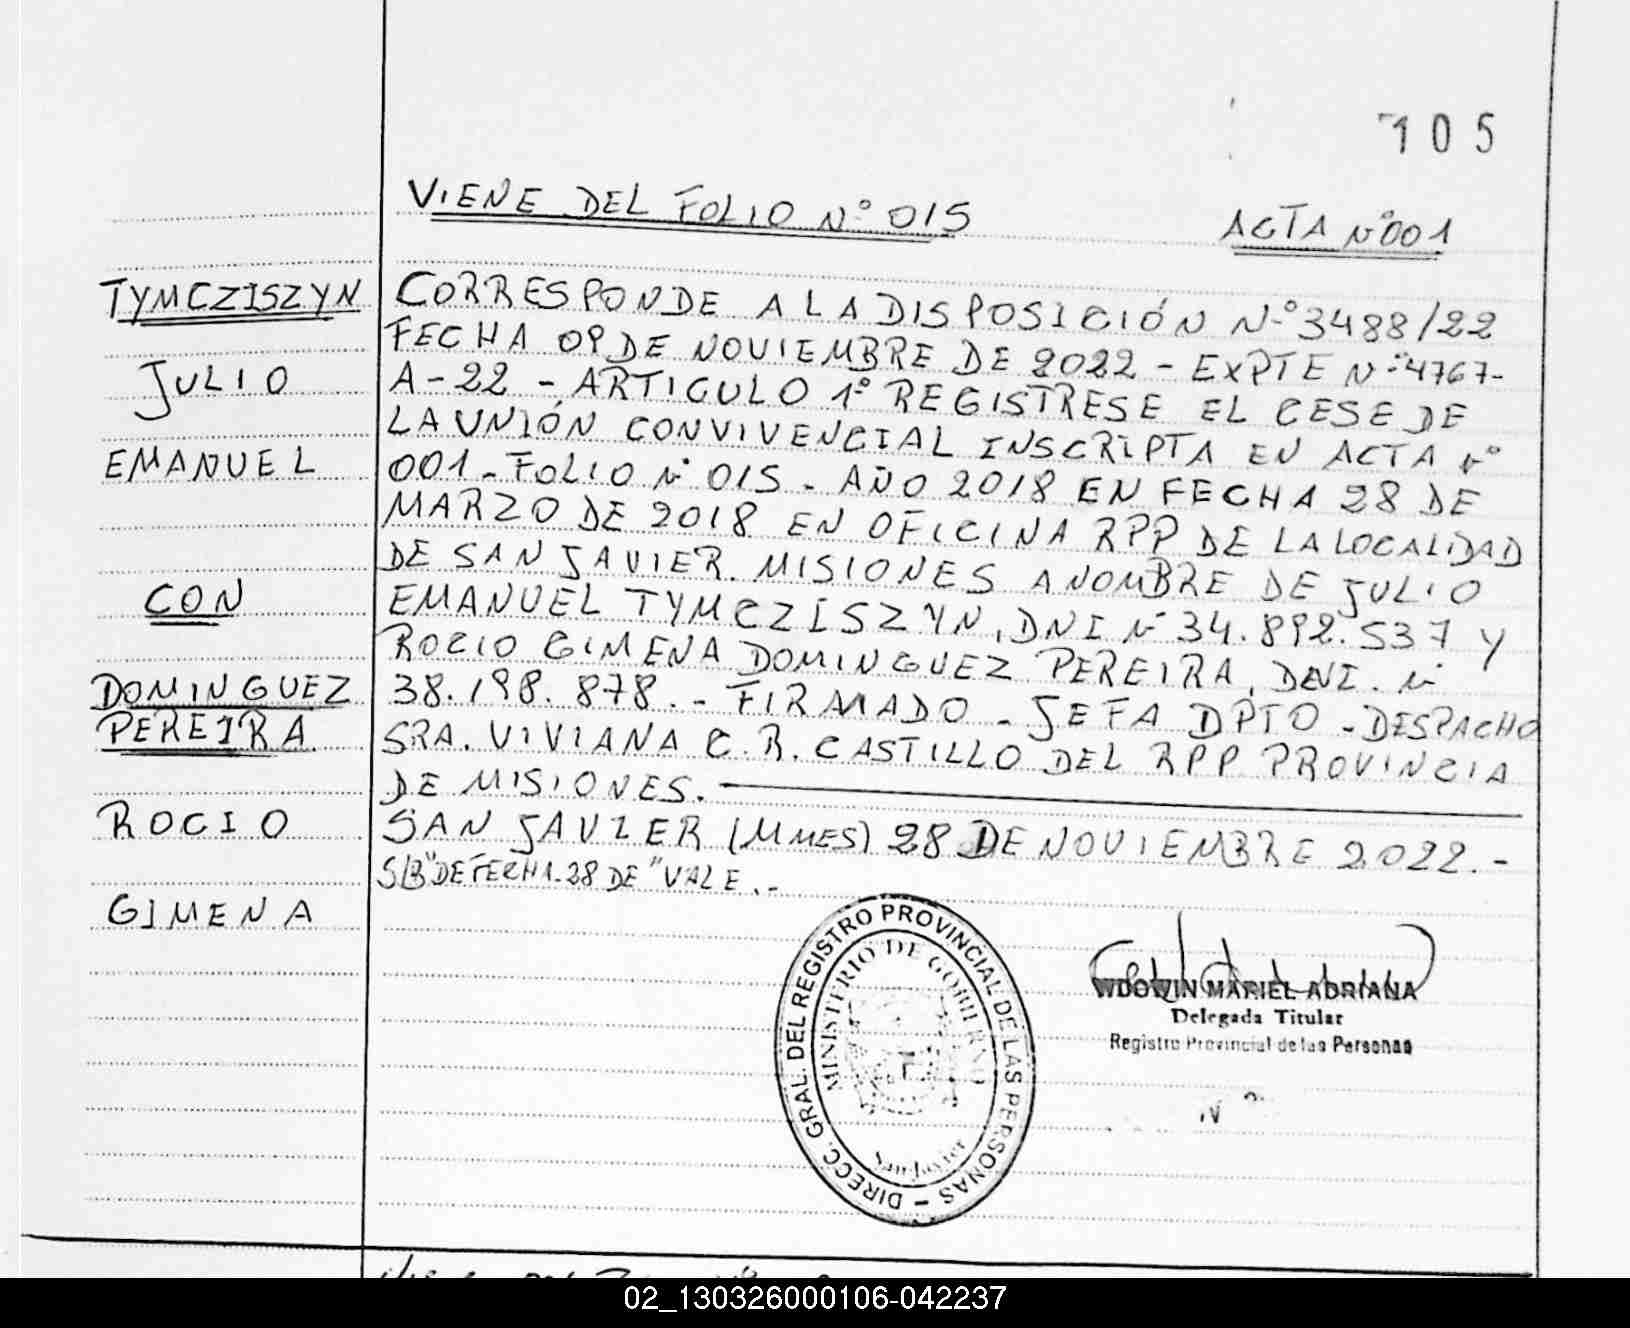 105
VIENE DEL FOLIO N° 015
ACTA N° 001
TYMCZISZYN
JULIO
EMANUEL
CON
DOMINGUEZ
PEREIRA
ROCIO
GIMENA
CORRESPONDE A LA DISPOSICIÓN N° 3488/22
FECHA 09 DE NOVIEMBRE DE 2022 - EXPTE N° 4767-
A-22 - ARTICULO 1° REGISTRESE EL CESE DE
LA UNIÓN CONVIVENCIAL INSCRIPTA EN ACTA N°
001 - FOLIO N° 015 - AÑO 2018 EN FECHA 28 DE
MARZO DE 2018 EN OFICINA RPP DE LA LOCALIDAD
DE SAN JAVIER. MISIONES A NOMBRE DE JULIO
EMANUEL TYMCZISZYN, DNI N° 34.892.537 Y
ROCIO GIMENA DOMINGUEZ PEREIRA, DNI. N°
38.198.878. - FIRMADO - JEFA DPTO - DESPACHO
SRA. VIVIANA C. R. CASTILLO DEL RPP PROVINCIA
DE MISIONES.
SAN JAVIER (MNES) 28 DE NOVIEMBRE 2022.-
S/B "DE FECHA-28 DE" VALE.-
DIRECC. GRAL. DEL REGISTRO PROVINCIAL DE LAS PERSONAS -
MINISTERIO DE GOBIERNO
San Javier
WDOWIN MARIEL ADRIANA
Delegada Titular
Registro Provincial de las Personas
02_130326000106-042237